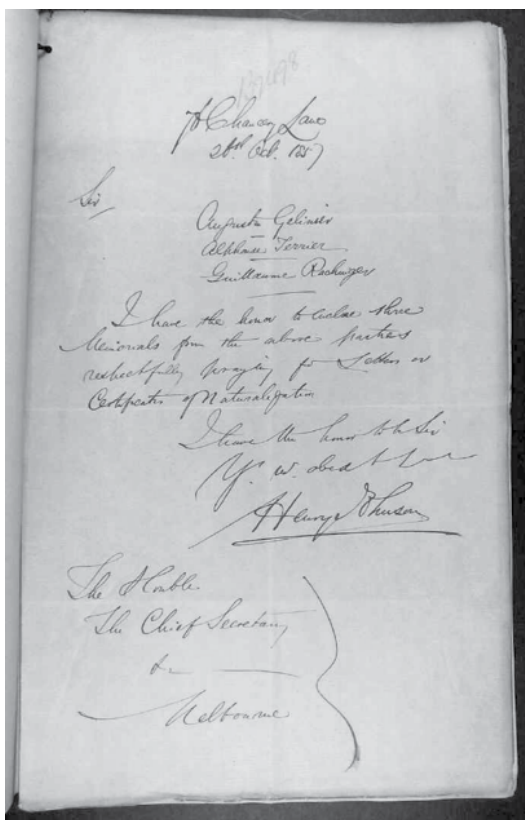 Chancery Lane
Oct. 1857
Sir
Auguste
Alphonse Terrier
Guillaume
I have the honor to enclose three
Memorials from the above parties
respectfully praying for Letters or
Certificates of Naturalization
I have the honor to be Sir
Yr.
Henry Johnson
The Honble.
The Chief Secretary
Melbourne